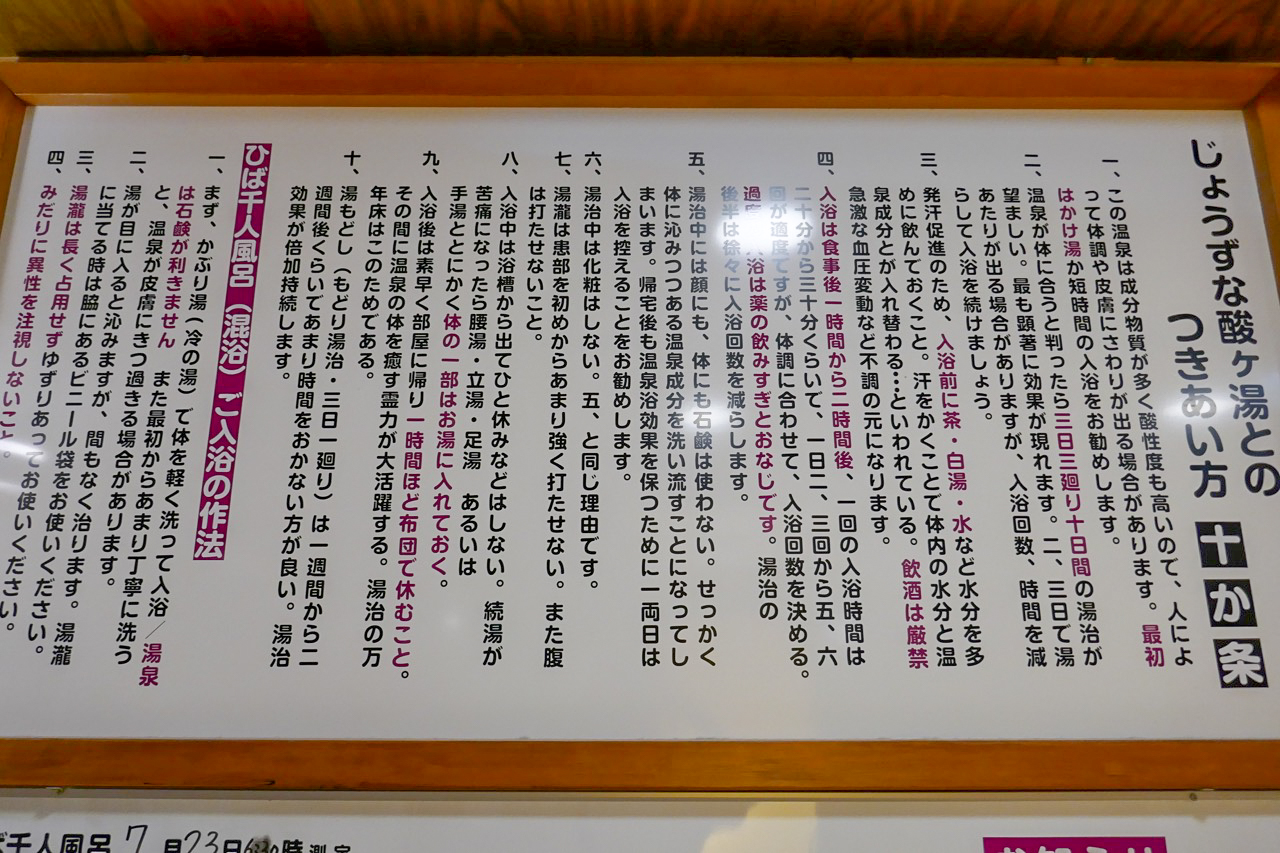 じょうずな酸ヶ湯との
つきあい方 十か条
一、この温泉は成分物質が多く酸性度も高いので、人によ
って体調や皮膚にさわりが出る場合があります。最初
はかけ湯か短時間の入浴をお勧めします。
二、温泉が体に合うと判ったら三日三廻り十日間の湯治が
望ましい。最も顕著に効果が現れます。二、三日で湯
あたりが出る場合がありますが、入浴回数、時間を減
らして入浴を続けましょう。
三、発汗促進のため、入浴前に茶・白湯・水など水分を多
めに飲んでおくこと。汗をかくことで体内の水分と温
泉成分とが入れ替わる…といわれている。飲酒は厳禁
急激な血圧変動など不調の元になります。
四、入浴は食事後一時間から二時間後、一回の入浴時間は
二十分から三十分くらいで、一日二、三回から五、六
回が適度ですが、体調に合わせて、入浴回数を決める。
過度 入浴は薬の飲みすぎとおなじです。湯治の
後半は徐々に入浴回数を減らします。
五、湯治中には顔にも、体にも石鹸は使わない。せっかく
体に沁みつつある温泉成分を洗い流すことになってし
まいます。帰宅後も温泉浴効果を保つために一両日は
入浴を控えることをお勧めします。
六、湯治中は化粧はしない。五、と同じ理由です。
七、湯瀧は患部を初めからあまり強く打たせない。また腹
は打たせないこと。
八、入浴中は浴槽から出てひと休みなどはしない。続湯が
苦痛になったら腰湯・立湯・足湯 あるいは
手湯ととにかく体の一部はお湯に入れておく。
九、入浴後は素早く部屋に帰り一時間ほど布団で休むこと。
その間に温泉の体を癒す霊力が大活躍する。湯治の万
年床はこのためである。
十、湯もどし（もどり湯治・三日一廻り）は一週間から二
週間後くらいであまり時間をおかない方が良い。湯治
効果が倍加持続します。
ひば千人風呂（混浴）ご入浴の作法
一、まず、かぶり湯（冷の湯）で体を軽く洗って入浴／湯泉
は石鹸が利きません また最初からあまり丁寧に洗う
と、温泉が皮膚にきつ過ぎる場合があります。
二、湯が目に入ると沁みますが、間もなく治ります。湯瀧
に当てる時は脇にあるビニール袋をお使いください。
三、湯瀧は長く占用せずゆずりあってお使いください。
四、みだりに異性を注視しないこと。
ば千人風呂 7月23日6:30時 測定
お知らせ